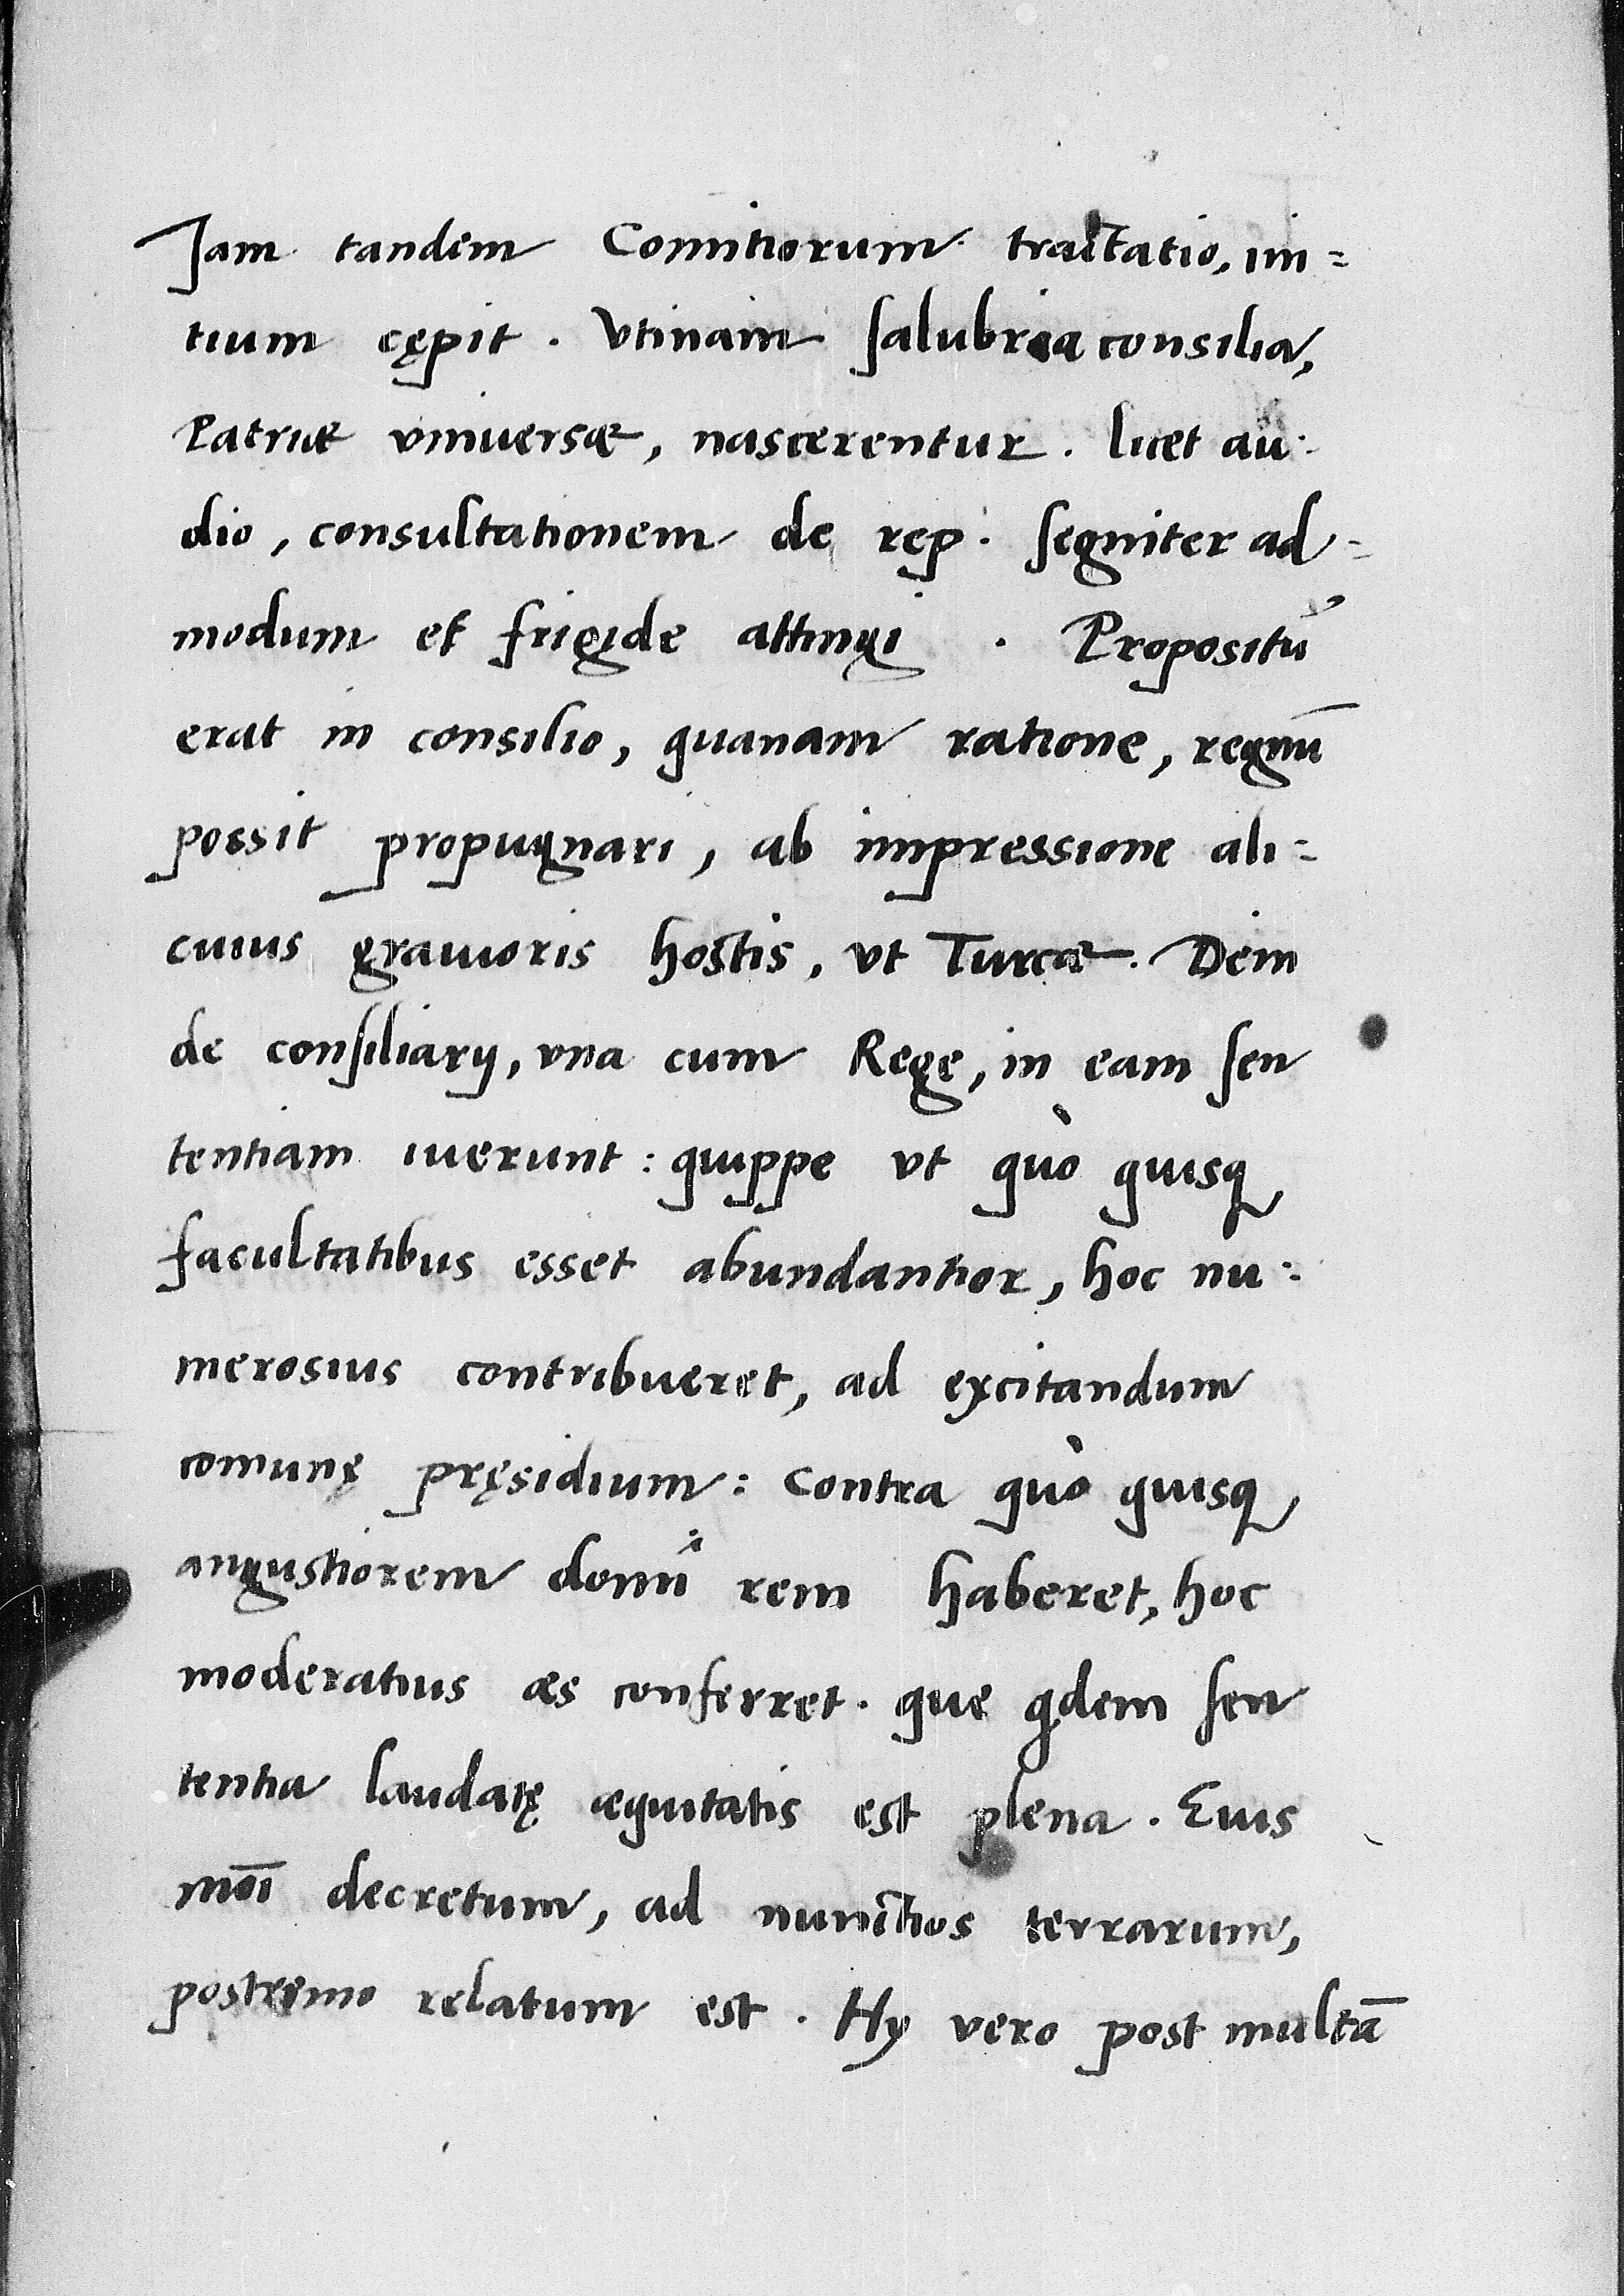 Jam tandem Comitiorum tractatio, ini=
tium cępit. Vtinam salubria consilia,
Patriæ vniuersæ, nascerentur. licet au:
dio, consultationem de rep. segniter ad=
modum et frigide attingi. Propositũ
erat in consilio, quanam ratione, regnũ
possit propugnari, ab impressione ali=
cuius grauioris hostis, vt Turcæ. Dein
de consiliarij, vna cum Rege, in eam sen
tentiam iuerunt: quippe vt quò quisq,
facultatibus esset abundantior, hoc nu:
merosius contribueret, ad excitandum
comunę pręsidium: contra quò quisq,
angustiorem domi rem haberet, hoc
moderatius æs conferret. que qdem sen
tentia laudatę æquitatis est plena. Eius
mōi decretum, ad nunctios terrarum,
postremo relatum est. Hy vero post multā